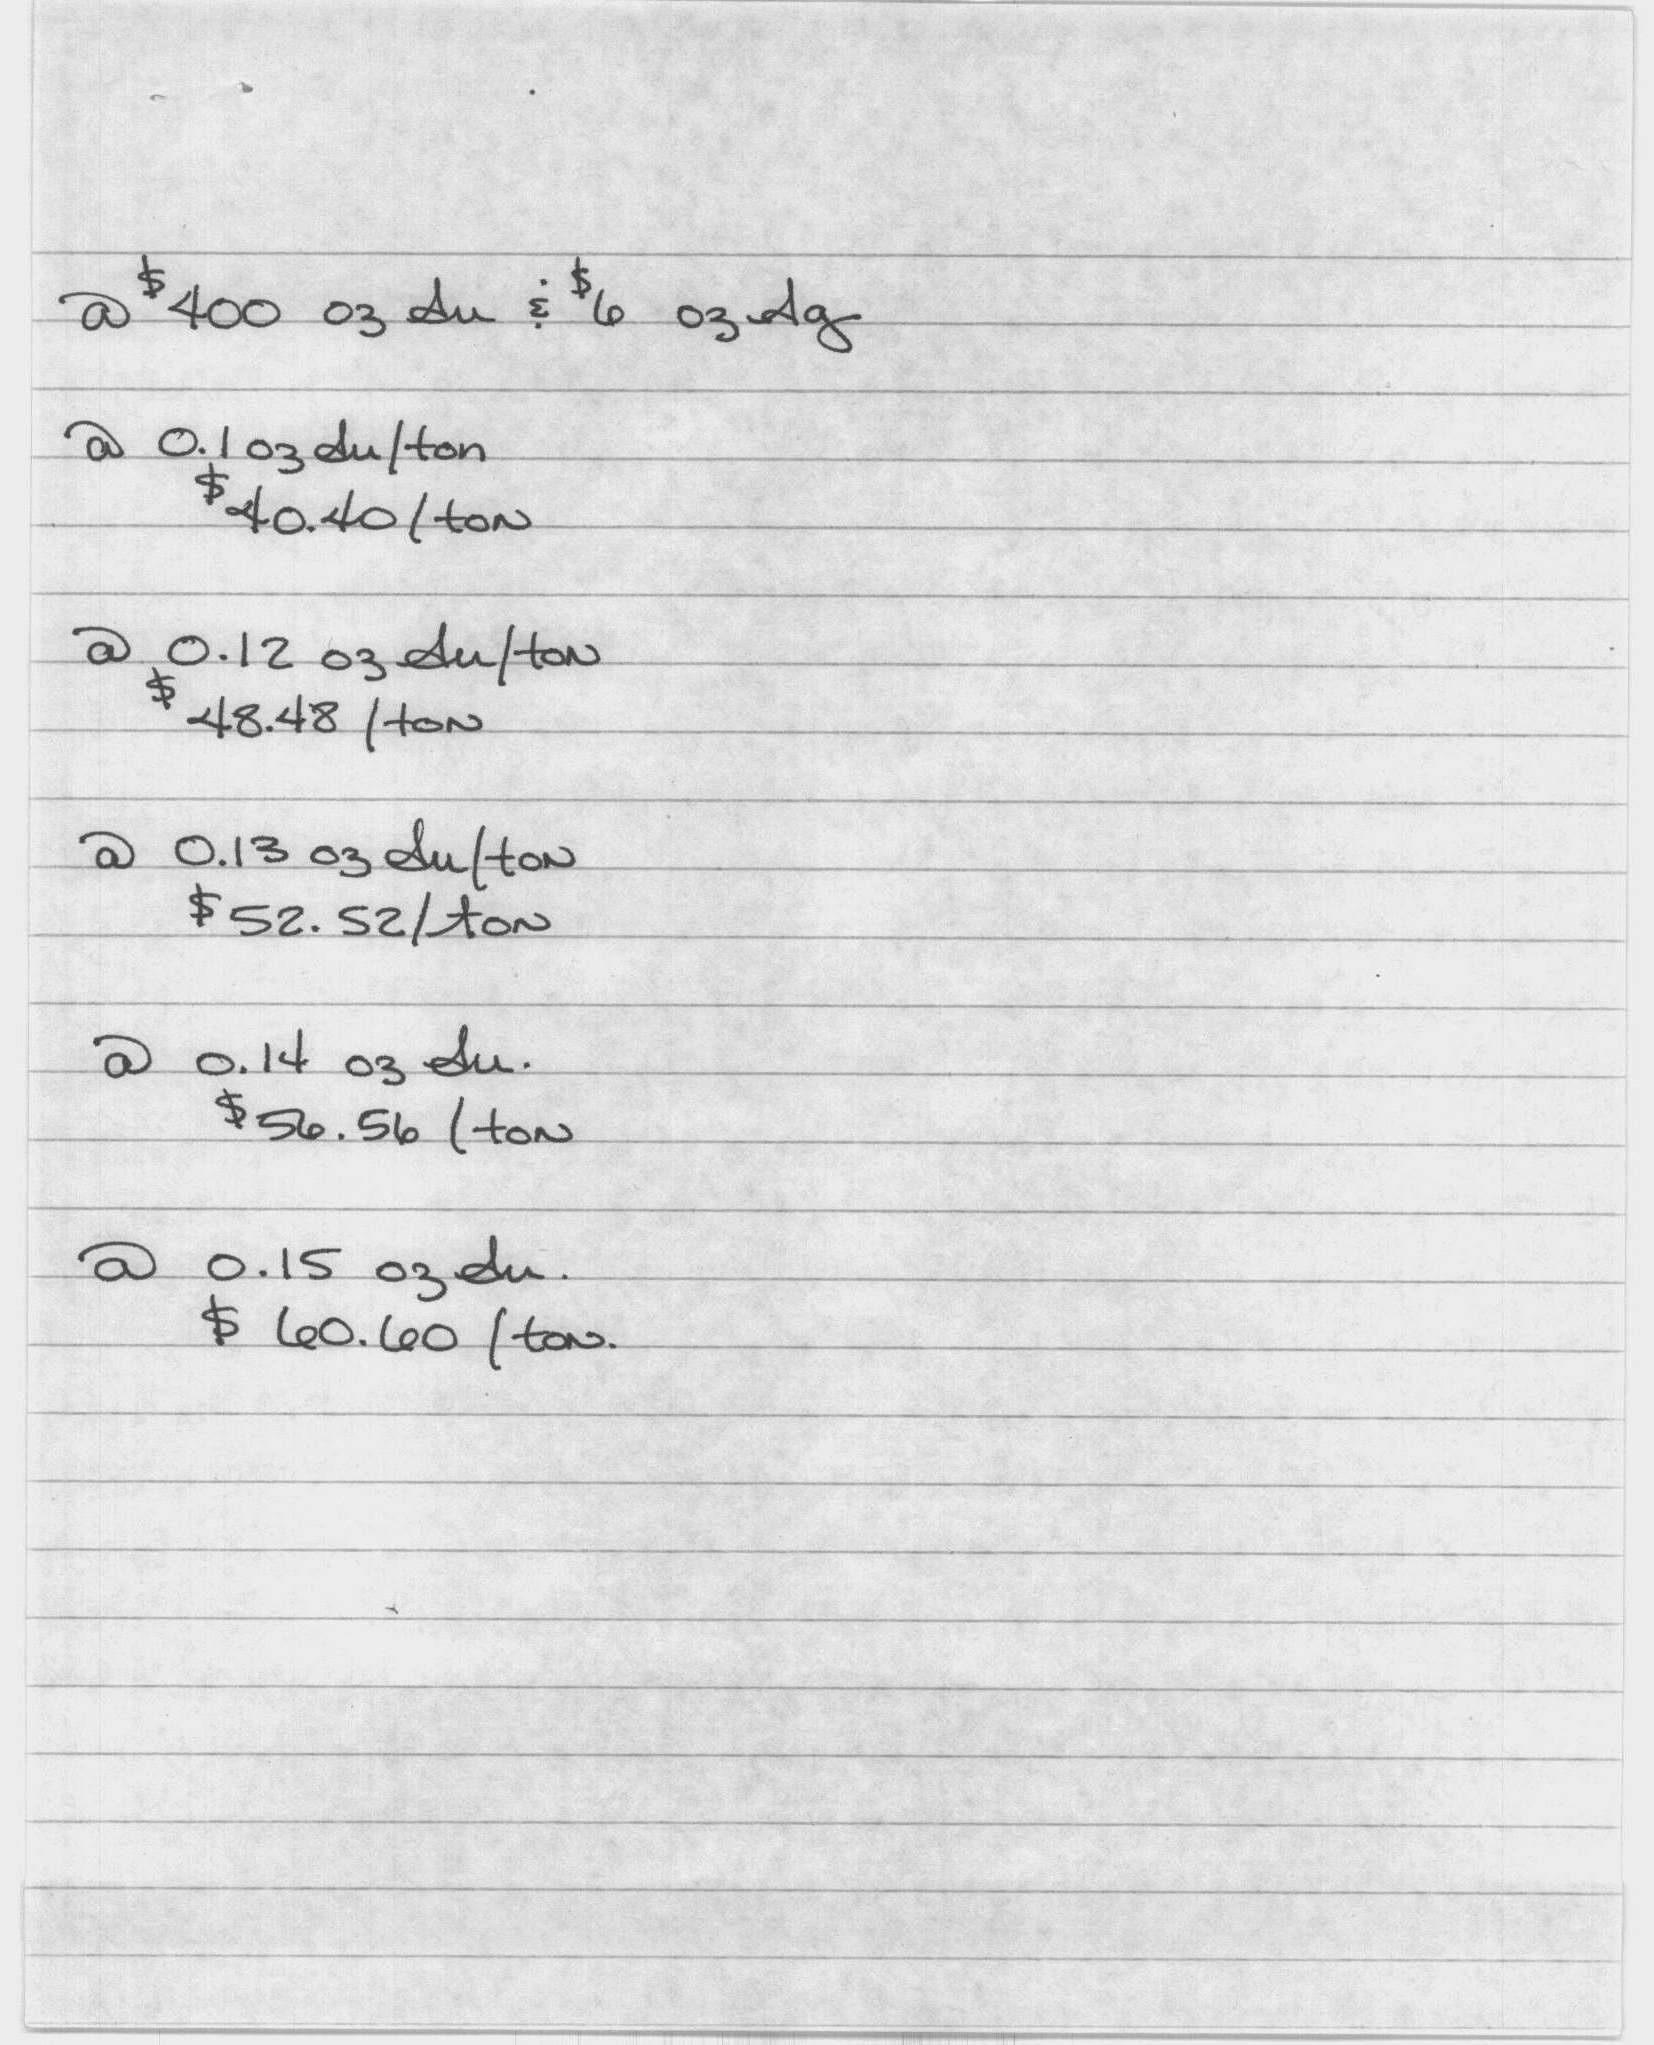 @ $400 oz Au & $6 oz Ag
@ 0.1 oz Au/ton
$40.40/ton
@ 0.12 oz Au/ton
$48.48/ton
@ 0.13 oz Au/ton
$52.52/ton
@ 0.14 oz Au.
$56.56/ton
@ 0.15 oz Au.
$60.60/ton.